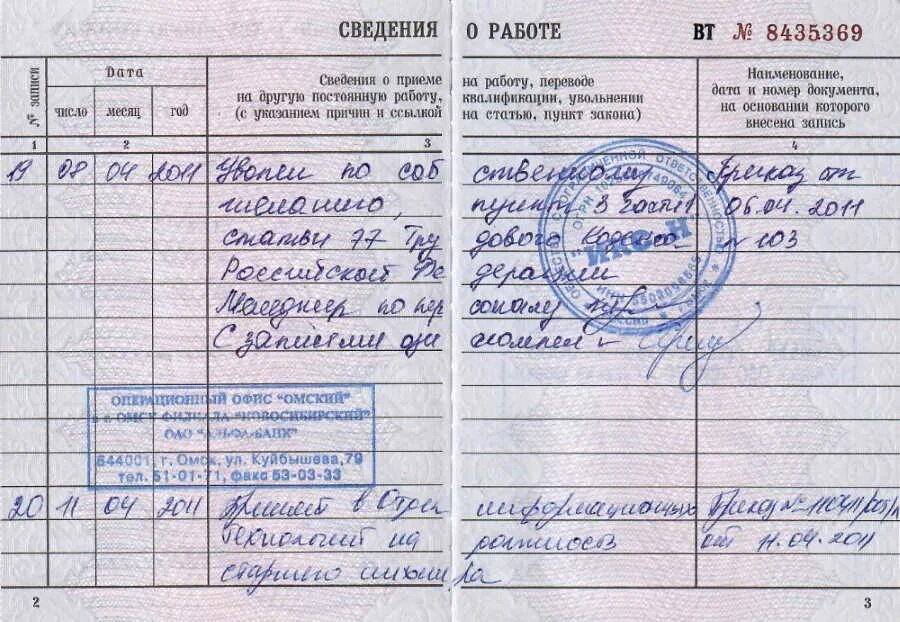 СВЕДЕНИЯ О РАБОТЕ ВТ № 8435369
№ записи
Дата
число месяц год
Сведения о приеме на работу, переводе
на другую постоянную работу, квалификации, увольнении
(с указанием причин и ссылкой на статью, пункт закона)
Наименование,
дата и номер документа,
на основании которого
внесена запись
1 2 3 4
19 08 04 2011 Уволен по собственному Приказ от
желанию, пункт 3 части 1 06.04.2011
статьи 77 Трудового Кодекса № 103
Российской Федерации
Менеджер по персоналу
С записями ознакомлен
ОГРАНИЧЕННОЙ ОТВЕТСТВЕННОСТЬЮ
ОГРН
ИНН
ОПЕРАЦИОННЫЙ ОФИС "ОМСКИЙ"
в г. ОМСК ФИЛИАЛА "НОВОСИБИРСКИЙ"
ОАО "АЛЬФА-БАНК"
644001, г. Омск, ул. Куйбышева,79
тел. 51-01-71, факс 53-03-33
20 11 04 2011 Принят в Отдел информационных Приказ №
Технологий на должность от 11.04.2011
старшего инженера
2 3